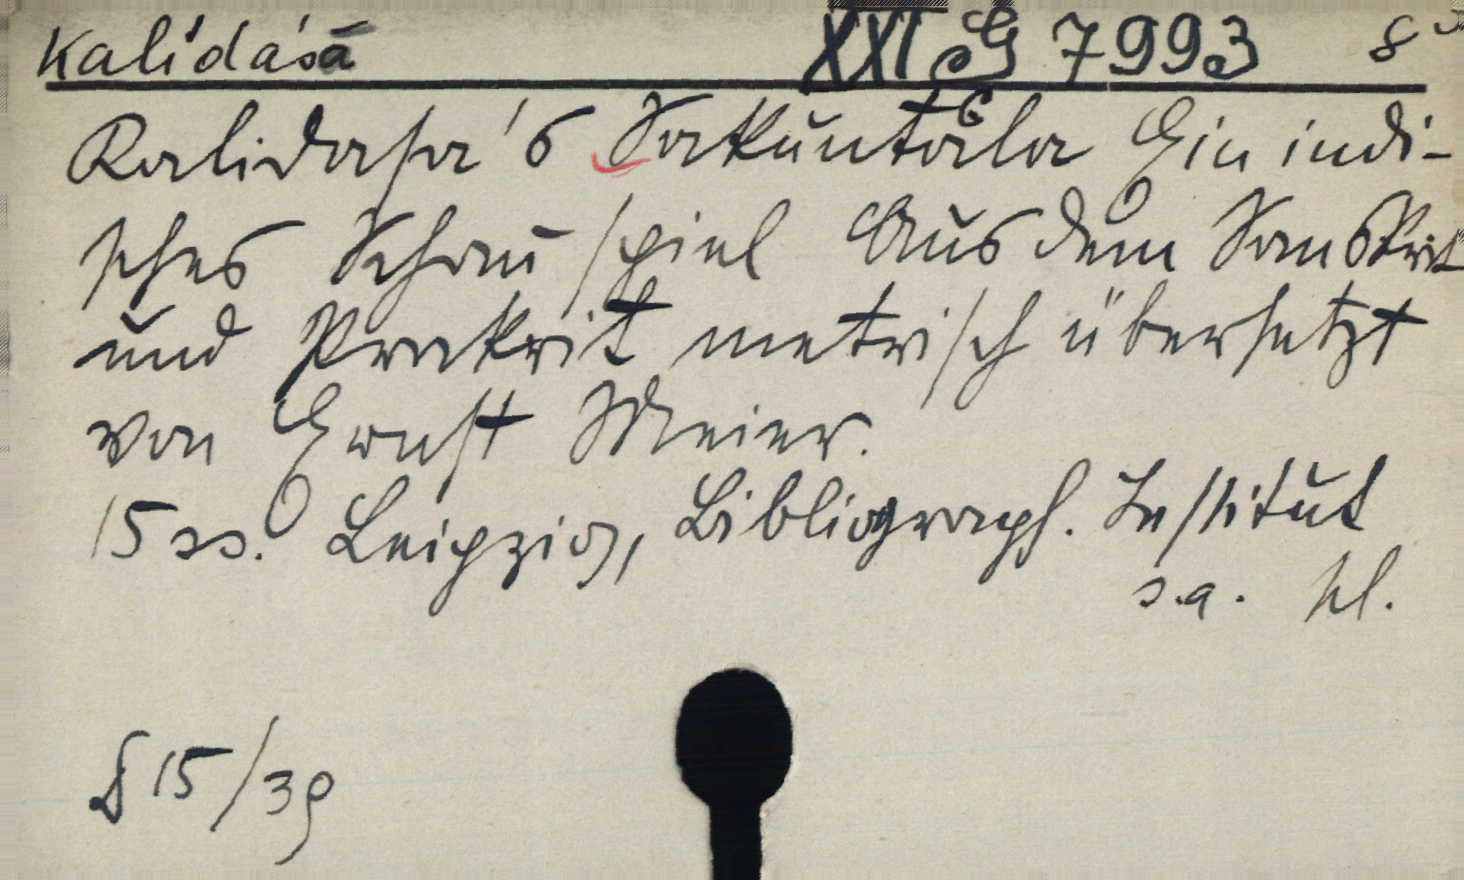 Kalidasa XXI G 7993 8°
Kalidasa's Sakuntala Ein indi-
sches Schauspiel Aus dem Sanskrit
und Prakrit metrisch übersetzt
von Ernst Meier.
15 ss. Leipzig, Bibliograph. Institut
s.a. kl.
15/39